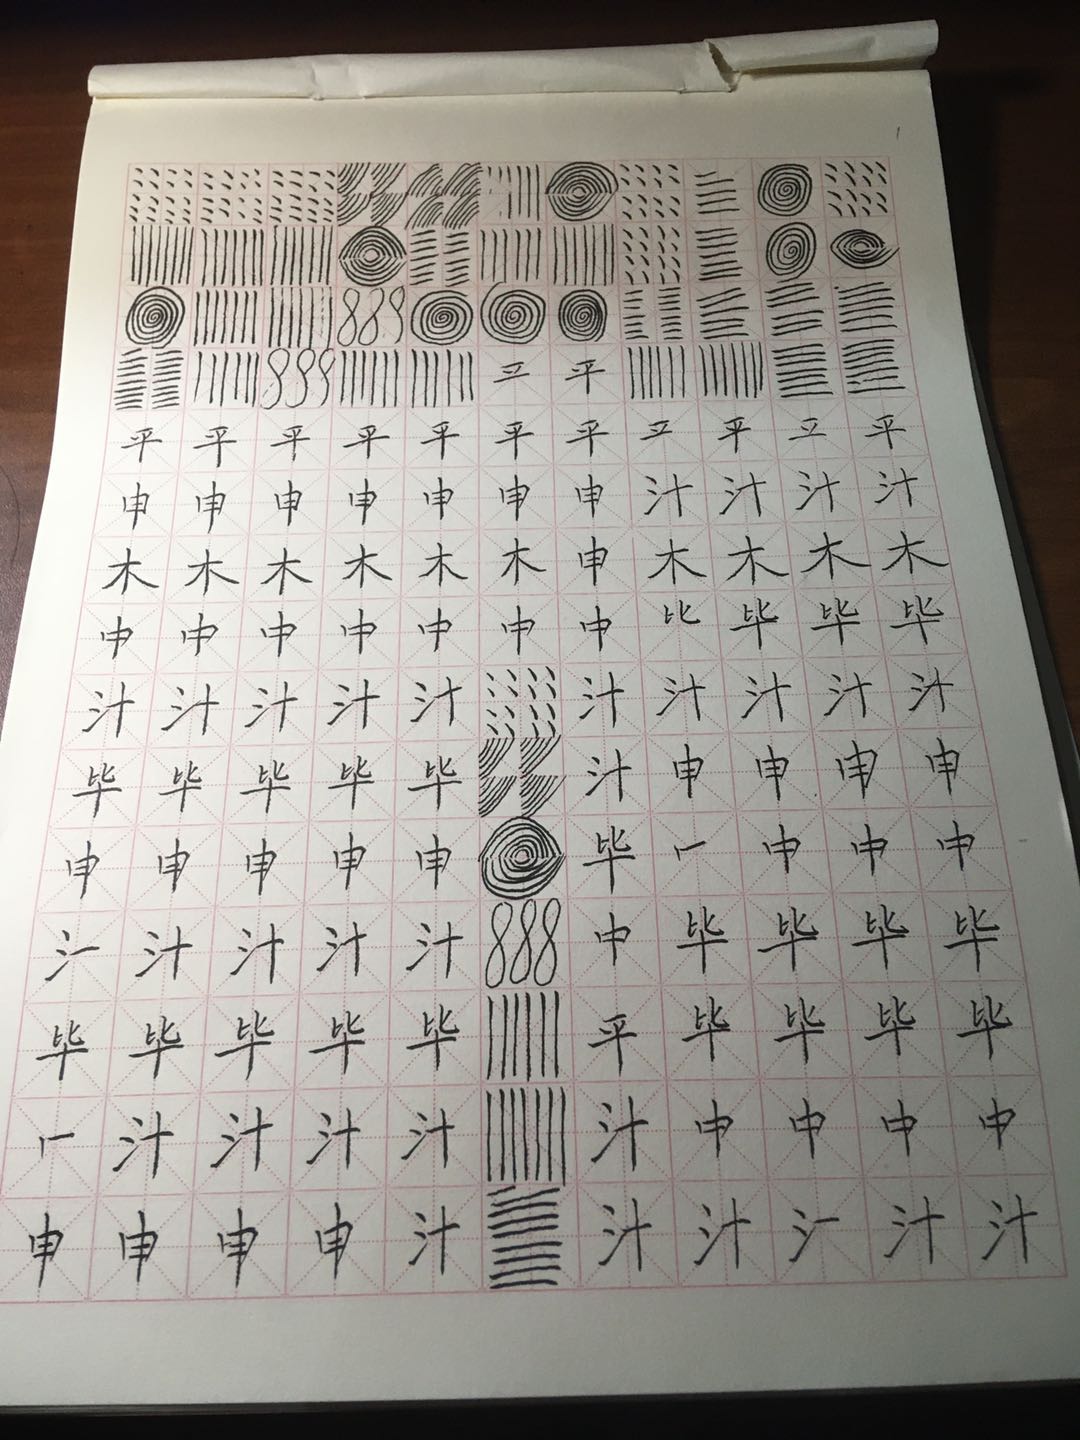 平
平 平 平 平 平 平 平 平 平
申 申 申 申 申 申 申 汁 汁 汁 汁
木 木 木 木 木 木 申 木 木 木 木
中 中 中 中 中 中 中 比 毕 毕 毕
汁 汁 汁 汁 汁 汁 汁 汁 汁 汁
毕 毕 毕 毕 毕 汁 申 申 申 申
申 申 申 申 申 毕 中 中 中
汁 汁 汁 汁 中 毕 毕 毕 毕
毕 毕 毕 毕 毕 平 毕 毕 毕 毕
汁 汁 汁 汁 汁 中 中 中 中
申 申 申 申 汁 汁 汁 汁 汁